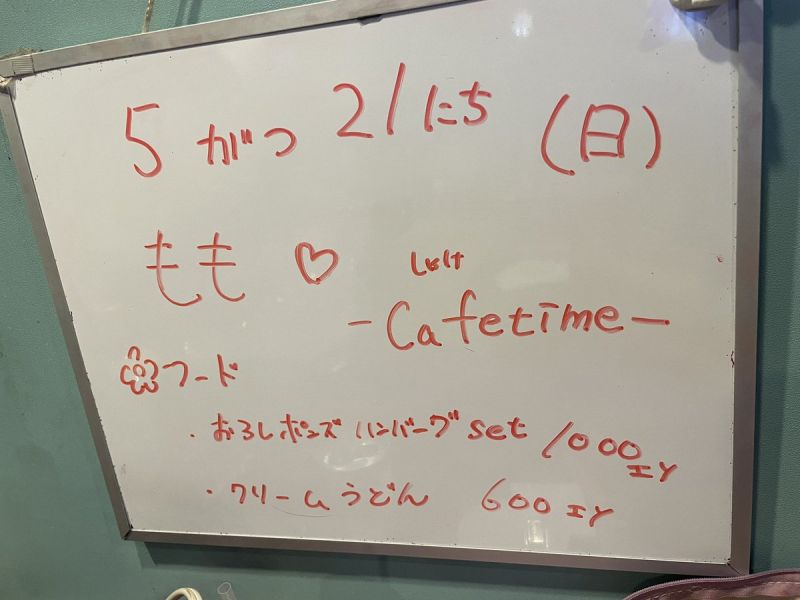 5がつ21にち(日)
もも♡
-Cafetime-
フード
・おろしポンズハンバーグset 1000エン
・クリームうどん 600エン